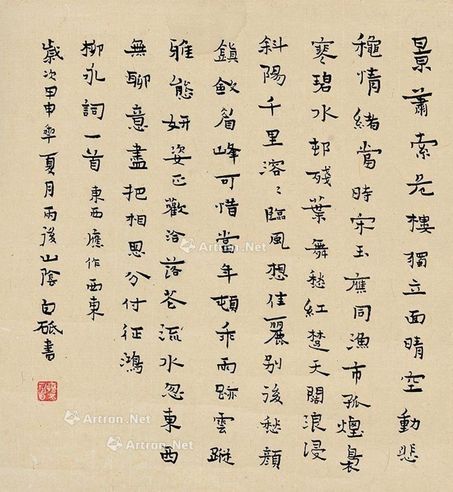 景蕭索危樓獨立面晴空動悲
穐情緒當時宋玉應同漁市孤煙裊
寒碧水邨殘葉舞愁紅楚天闊浪浸
斜陽千里溶〻臨風想佳麗別後愁顏
鎮斂眉峰可惜當年頓乖雨跡雲蹤
雅態妍姿正歡洽落花流水忽東西
無聊意盡把相思分付征鴻
柳永詞一首 東西應作西東
歲次甲申年夏月雨後山陰白砥書
Artron.Net
Artron.Net
Artron.Net
Artron.Net